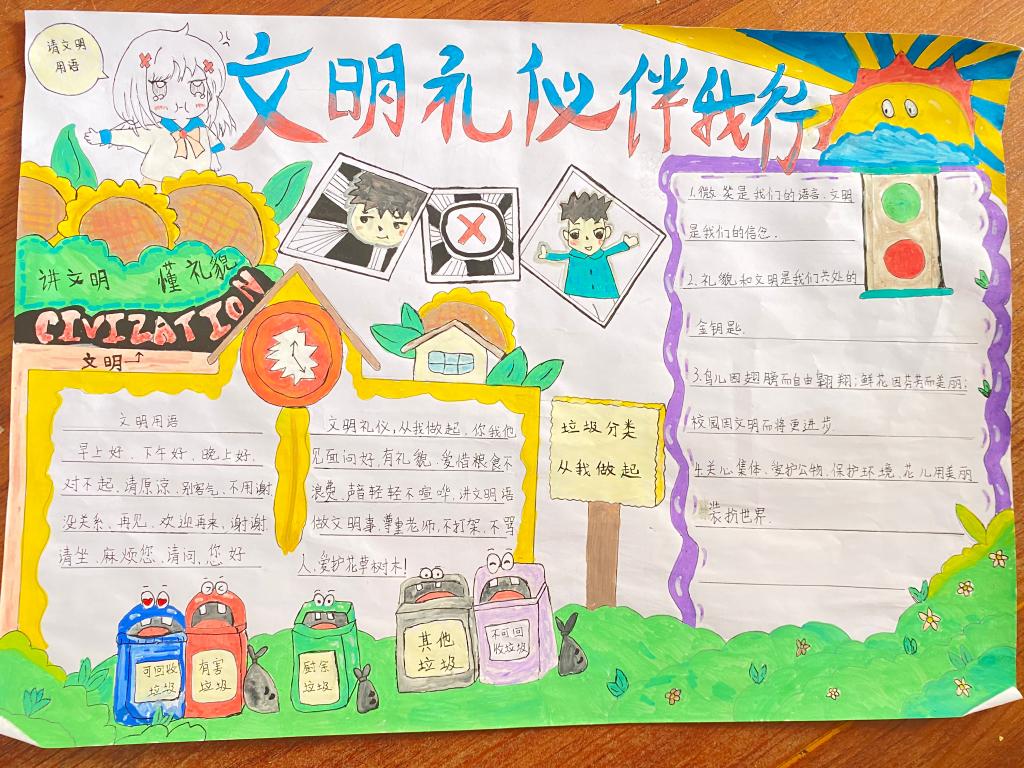 请文明
用语
文明礼仪伴我行
讲文明 懂礼貌
CIVIZATION
文明→
文明用语
早上好、下午好、晚上好、
对不起、请原谅、别客气、不用谢、
没关系、再见、欢迎再来、谢谢
请坐、麻烦您、请问、您好
文明礼仪,从我做起,你我他
见面问好,有礼貌,爱惜粮食不
浪费,声音轻轻不喧哗,讲文明语
做文明事,尊重老师,不打架,不骂
人,爱护花草树木!
垃圾分类
从我做起
1.微笑是我们的语言、文明
是我们的信念.
2.礼貌和文明是我们共处的
金钥匙.
3.鸟儿因翅膀而自由翱翔;鲜花因芬芳而美丽;
校园因文明而将更进步
4.关心集体、爱护公物、保护环境、花儿用美丽
装扮世界.
可回收
垃圾
有害
垃圾
厨余
垃圾
其他
垃圾
不可回
收垃圾